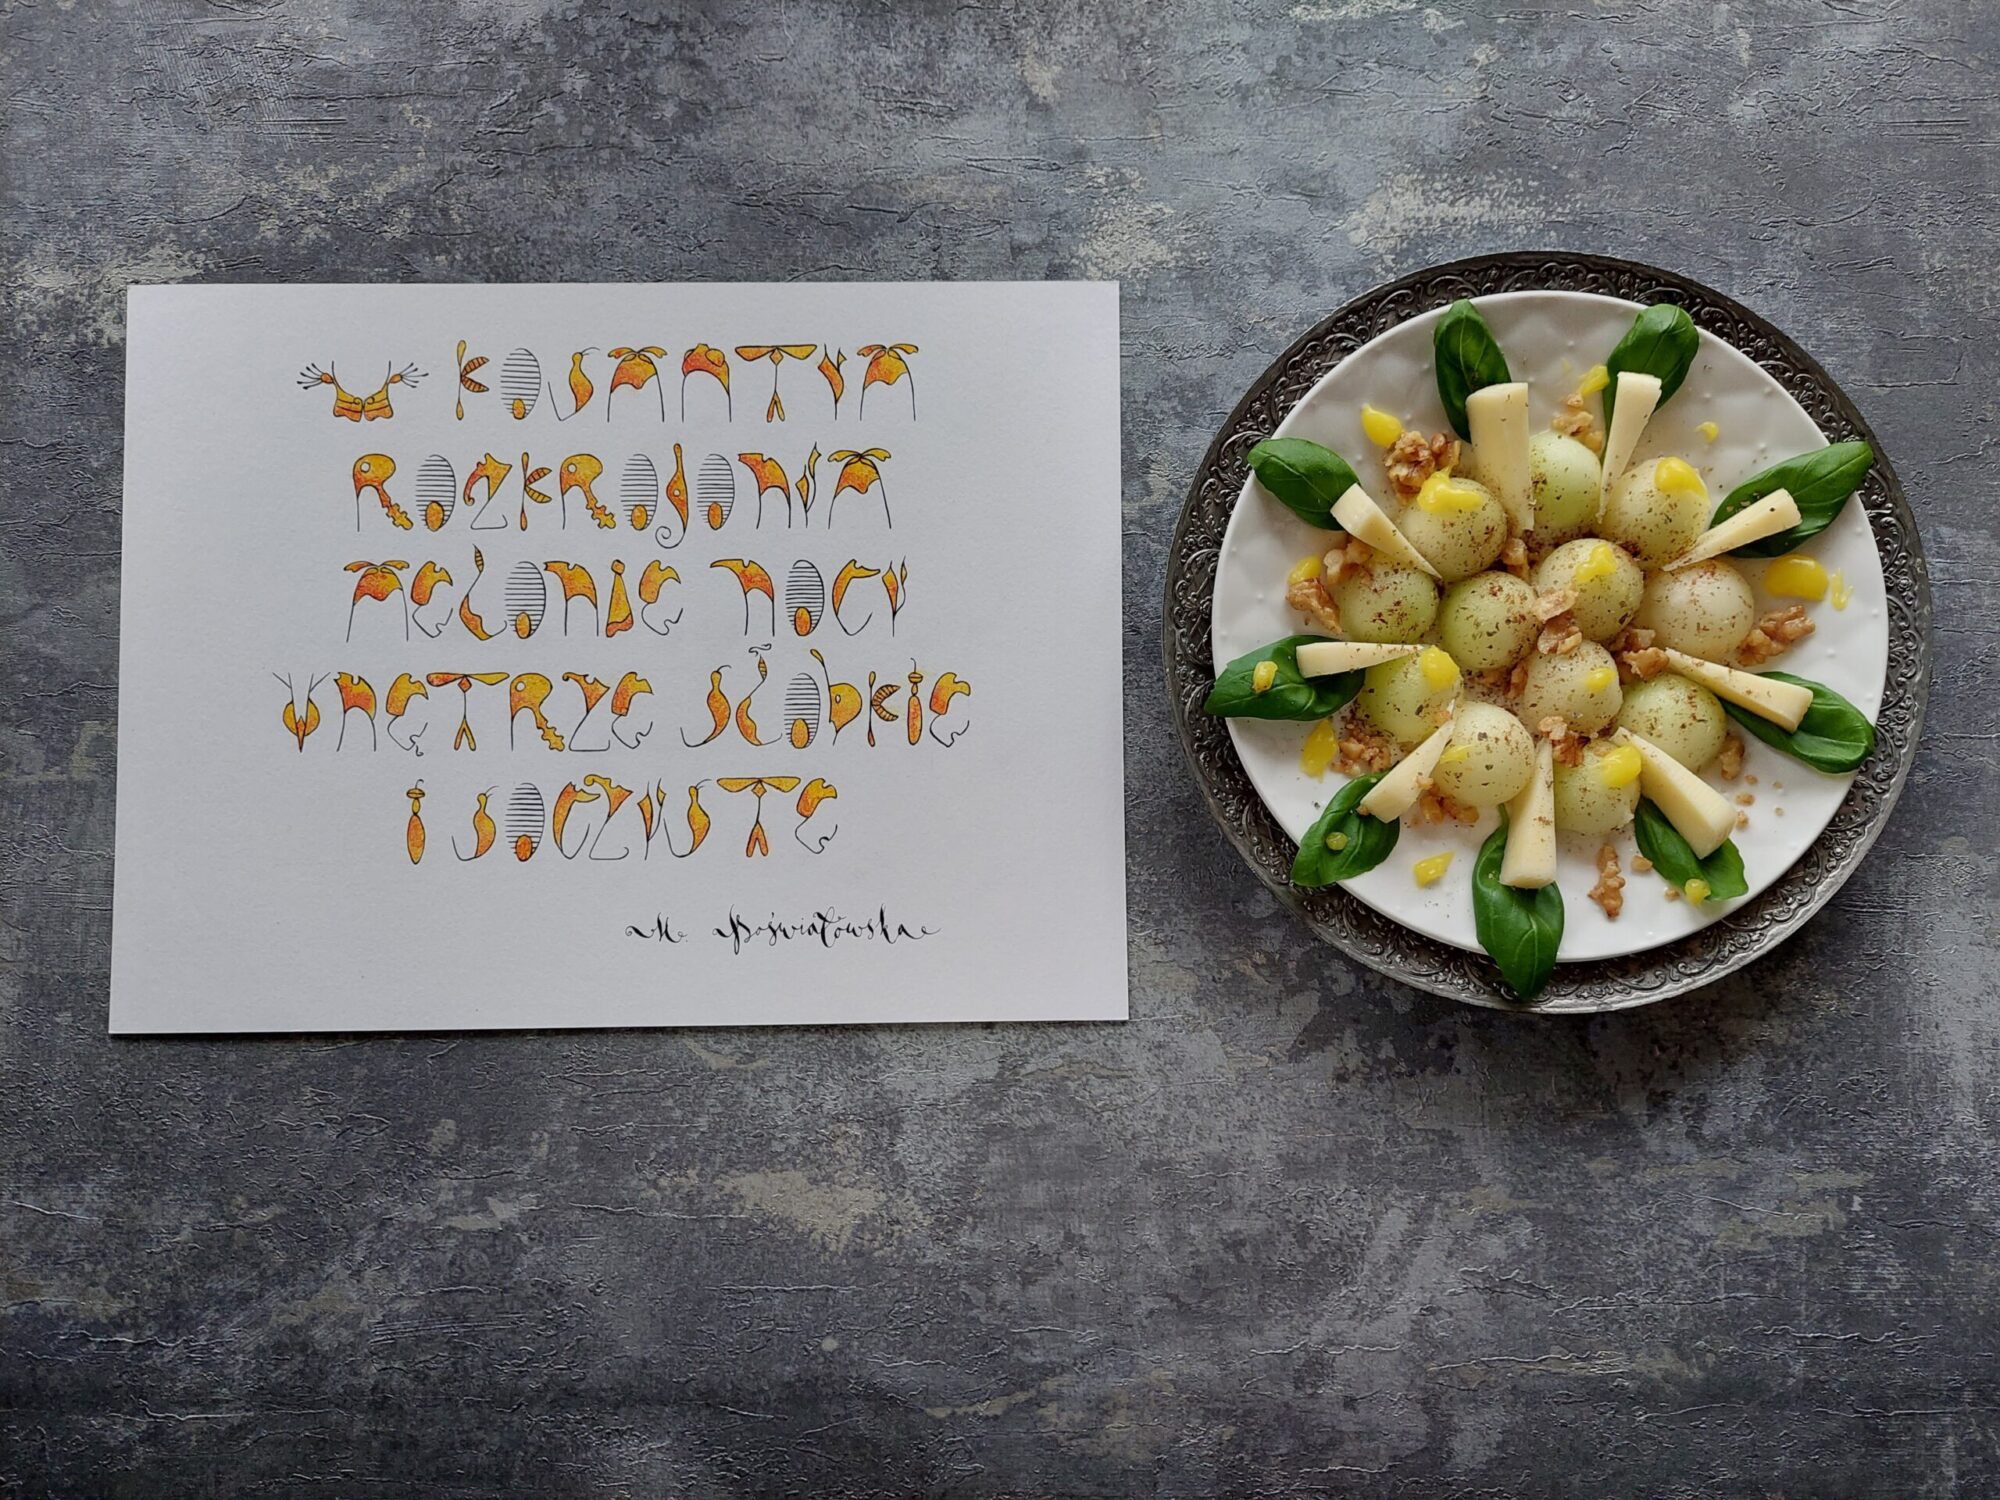 W KOSMATYM
ROZKROJONYM
MELONIE NOCY
WNĘTRZE SŁODKIE
I SOCZYSTE
H. Poświatowska